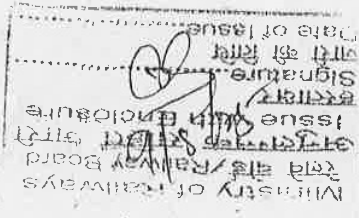 Ministry of Railways
रेलवे बोर्ड/Railway Board
अनुलग्नक सहित जारी
Issue with Enclosure
हस्ताक्षर
Signature
जारी की तिथि
Date of Issue